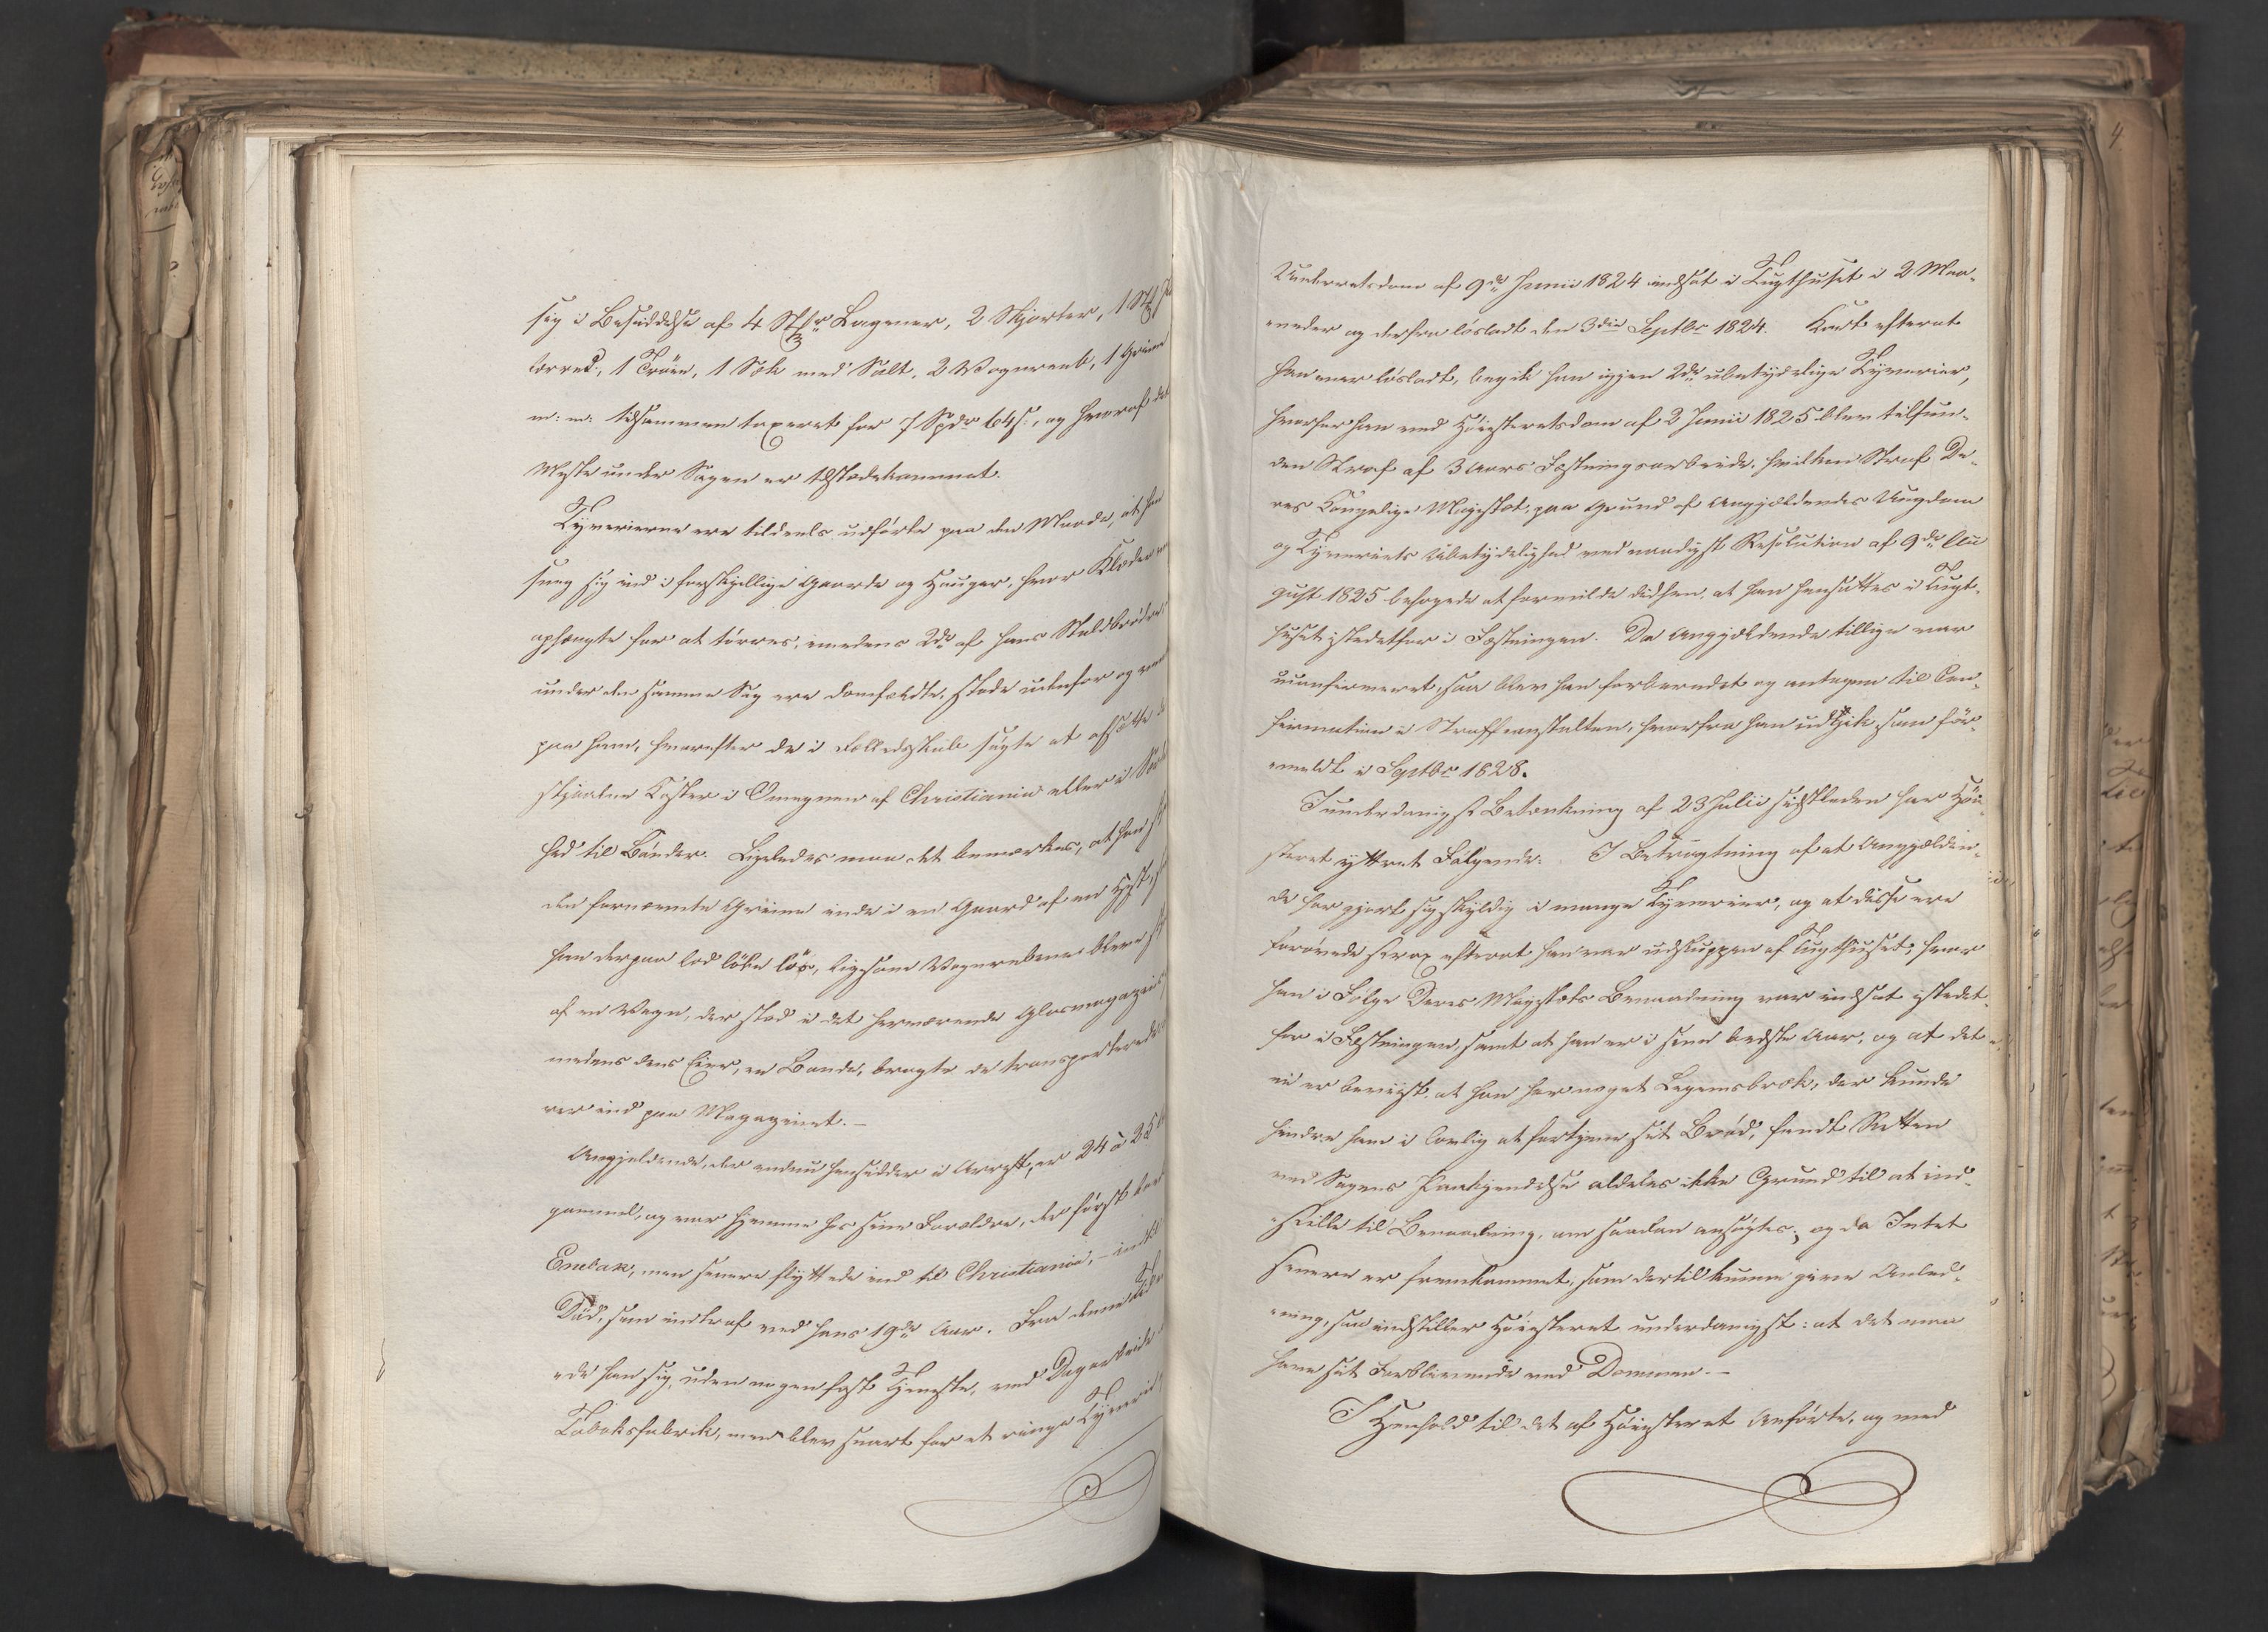 sig i Besiddelse af 4 Stkr Lagener, 2 Skjorter, 1 Stk
tørred, 1 Trøie, 1 Sæk med Salt, 2 Vognreeb, 1 Griim
m: m: tilsammen taxeret for 7 Spdr 64 s:, og hvoraf det
Meste under Sagen er tilstedekommet.
Tyverierne ere tildeels udførte paa den Maade, at han
sneg sig ind i forskjellige Gaarde og Hauger, hvor Klæder vare
ophængte for at tørres, medens 2de af hans Staldbrødre,
under den samme Sag ere domfældte, stode udenfor og
paa ham, hvorefter de i Fælledsskab søgte at afsætte de
stjaalne Koster i Omegnen af Christiania eller i
hed til Bønder. Ligeledes maa det bemærkes, at han
den fornævnte Griime inde i en Gaard af en Hest,
han derpaa lod løbe løs, ligesom Vognrebene bleve
af en Vogn, der stod i det herværende Glasmagazin,
medens dens Eier, en Bonde, bragte de transporterede
rer ind paa Magazinet. –
Angjeldende, der endnu hensidder i Arrest, er 24 à 25
gammel, og var hjemme hos sine Forældre, der først
Enebak, men senere flyttede ind til Christiania, – indtil
Død, som indtraf ved hans 19de Aar. Fra denne Tid
ede han sig, uden nogen fast Tjeneste, ved Dagarbeide
Tobaksfabrik, men blev snart for et ringe Tyverie
Underretsdom af 9de Junii 1824 indsat i Tugthuset i 2 Maa-
neder og derfra løsladt den 3die Septbr 1824. Kort efterat
han var løsladt, begik han igjen 2de ubetydelige Tyverier,
hvorfor han ved Høiesteretsdom af 2 Junii 1825 blev tilfun-
den Straf af 3 Aars Fæstningsarbeide, hvilken Straf De-
res Kongelige Majestæt, paa Grund af Angjældendes Ungdom
og Tyveriets Ubetydelighed ved naadigst Resolution af 9de Au-
gust 1825 behagede at formilde didhen, at han hensattes i Tugt-
huset istedetfor i Fæstningen. Da Angjældende tillige var
uconfirmeret, saa blev han forberedet og antagen til Con-
firmation i Straffeanstalten, hvorfra han udgik som før-
meldt i Septbr 1828.
I underdanigst Betænkning af 23 Julii sidstleden har Høi-
steret yttret Følgende: I Betragtning af at Angjælden-
de har gjort sig skyldig i mange Tyverier, og at disse ere
forøvede strax efterat han var udsluppen af Tugthuset, hvor
han i Følge Deres Majestæts Benaadning var indsat istedet-
for i Fæstningen, samt at han er i sine bedste Aar, og at det
ei er beviist, at han har noget Legemsbræk, der kunde
hindre ham i lovlig at fortjene sit Brød, fandt Retten
ved Sagens Paakjendelse aldeles ikke Grund til at ind-
stille til Benaadning, om saadan ansøgtes; og da Intet
senere er fremkommet, som dertil kunne give Anled-
ning, saa indstiller Høiesteret underdanigst: at det maa
have sit Forblivende ved Dommen. –
I Henhold til det af Høiesteret Anførte, og med